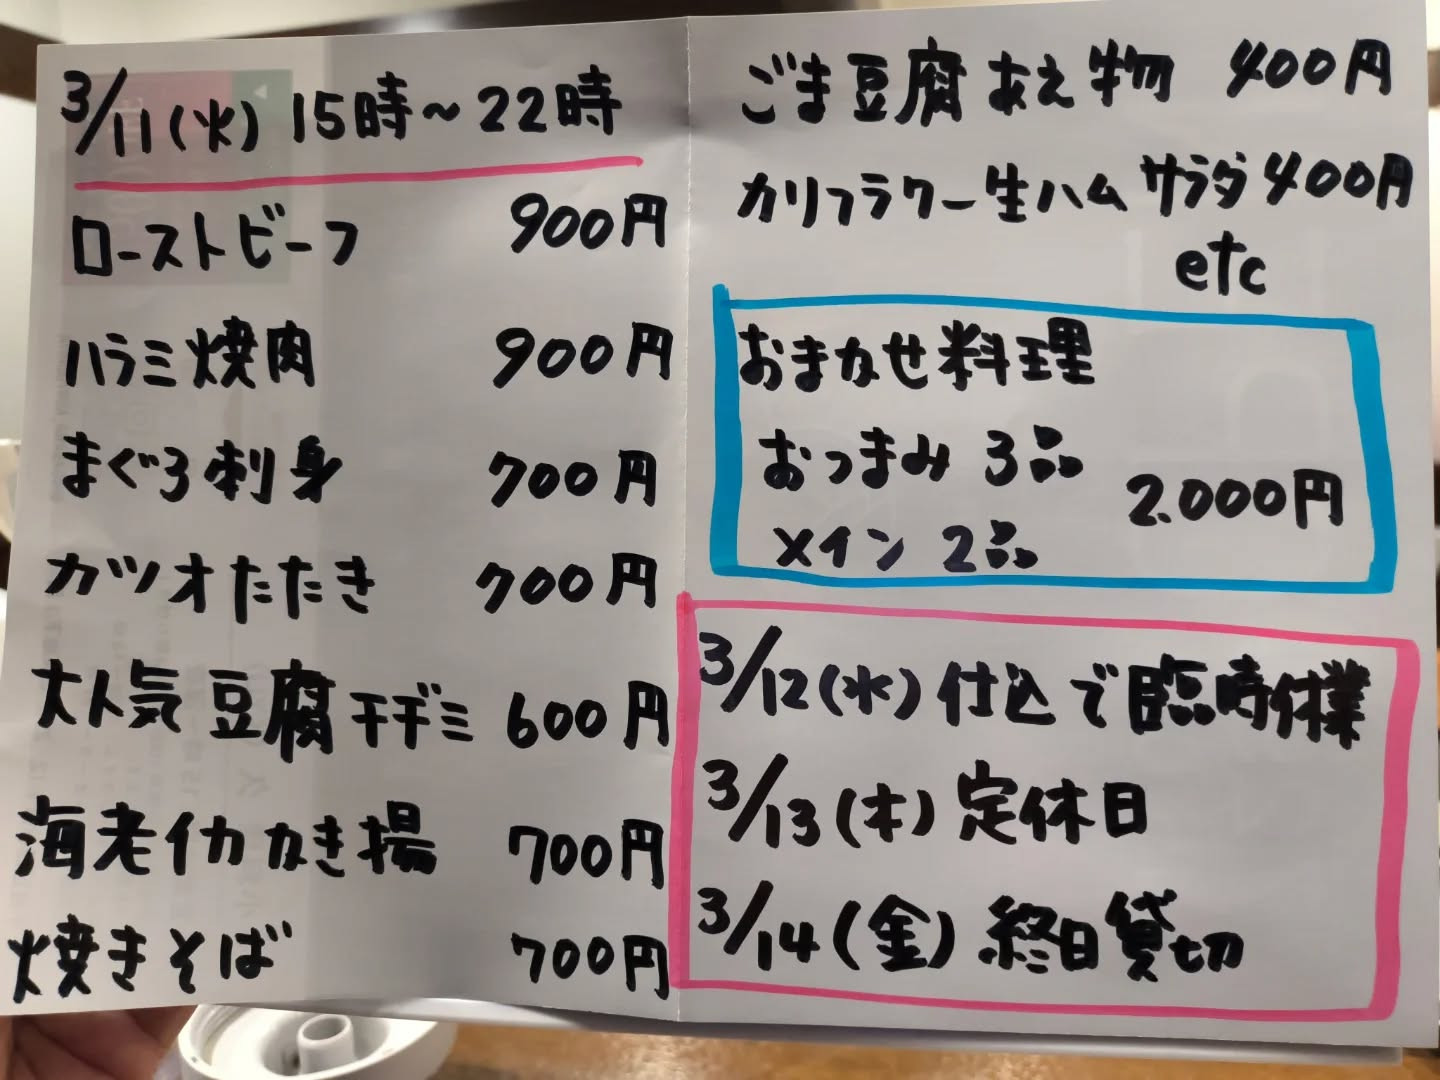 3/11(火) 15時～22時
ローストビーフ 900円
ハラミ焼肉 900円
まぐろ刺身 700円
カツオたたき 700円
大人気 豆腐チヂミ 600円
海老イカかき揚 700円
焼きそば 700円
ごま豆腐あえ物 400円
カリフラワー生ハムサラダ 400円
etc
おまかせ料理
おつまみ 3品
2.000円
メイン 2品
3/12(水) 仕込で臨時休業
3/13(木) 定休日
3/14(金) 終日貸切